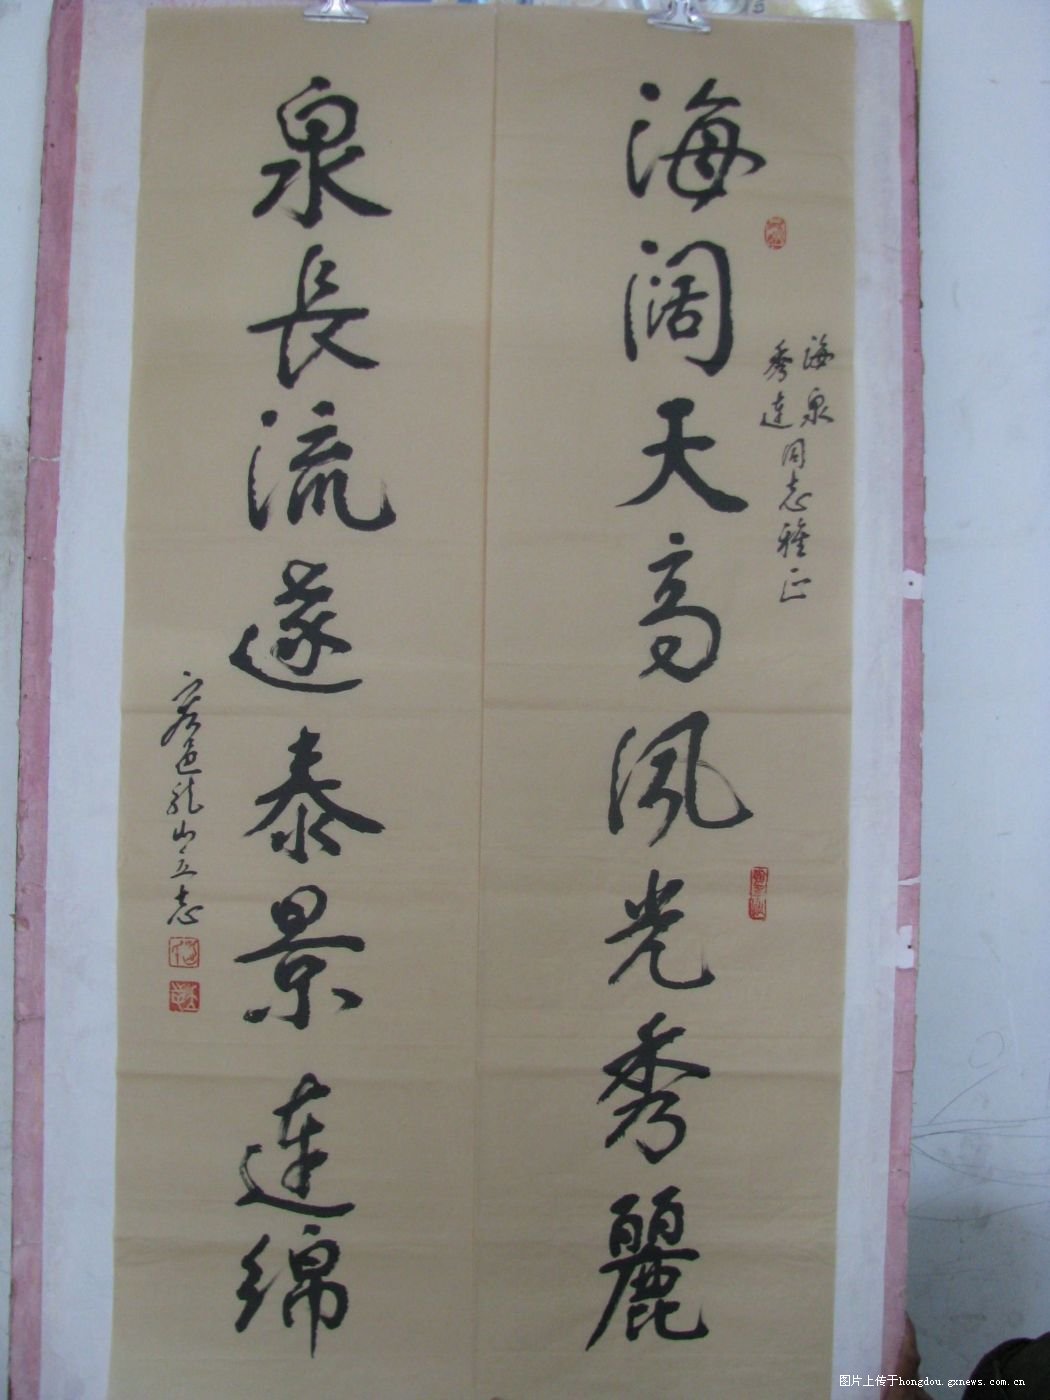 海阔天高风光秀麗
海泉
秀连同志雅正
泉長流遂泰景连绵
容邑龙山立志
图片上传于hongdou.gxnews.com.cn